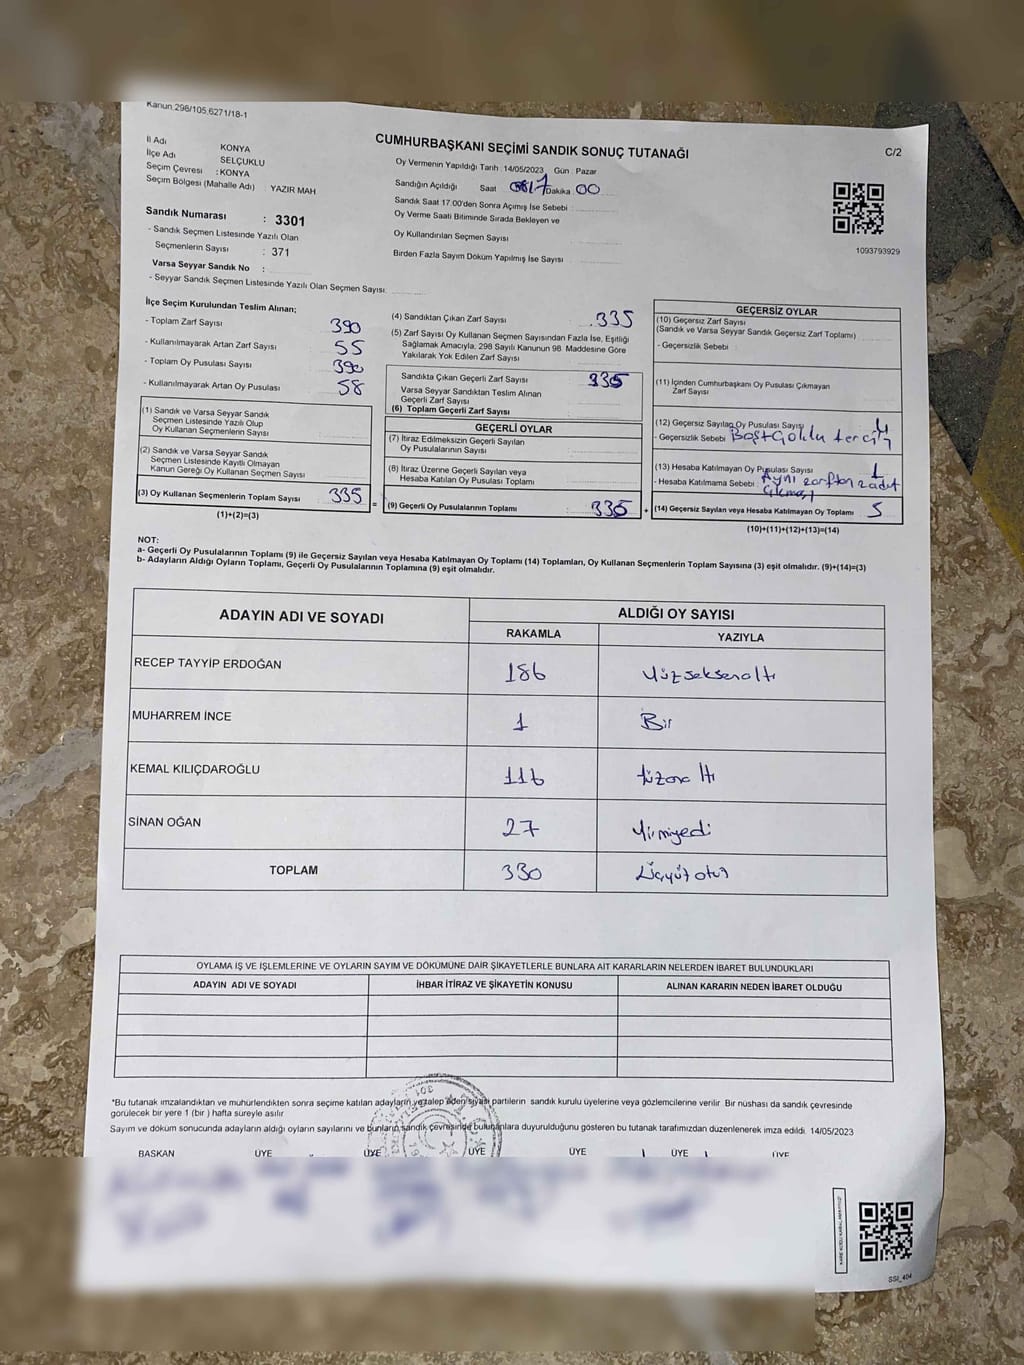 Kanun 298/105,6271/18-1
CUMHURBAŞKANI SEÇİMİ SANDIK SONUÇ TUTANAĞI
C/2
İl Adı KONYA
İlçe Adı SELÇUKLU
Seçim Çevresi : KONYA
Seçim Bölgesi (Mahalle Adı) YAZIR MAH
Sandık Numarası : 3301
- Sandık Seçmen Listesinde Yazılı Olan
Seçmenlerin Sayısı : 371
Varsa Seyyar Sandık No :
- Seyyar Sandık Seçmen Listesinde Yazılı Olan Seçmen Sayısı:
Oy Vermenin Yapıldığı Tarih : 14/05/2023 Gün : Pazar
Sandığın Açıldığı Saat 17 Dakika 00
Sandık Saat 17.00'den Sonra Açımış İse Sebebi
Oy Verme Saati Bitiminde Sırada Bekleyen ve
Oy Kullandırılan Seçmen Sayısı
Birden Fazla Sayım Döküm Yapılmış İse Sayısı
1093793929
İlçe Seçim Kurulundan Teslim Alınan;
- Toplam Zarf Sayısı 390
- Kullanılmayarak Artan Zarf Sayısı 55
- Toplam Oy Pusulası Sayısı 390
- Kullanılmayarak Artan Oy Pusulası 58
(1) Sandık ve Varsa Seyyar Sandık
Seçmen Listesinde Yazılı Olup
Oy Kullanan Seçmenlerin Sayısı
(2) Sandık ve Varsa Seyyar Sandık
Seçmen Listesinde Kayıtlı Olmayan
Kanun Gereği Oy Kullanan Seçmen Sayısı
(3) Oy Kullanan Seçmenlerin Toplam Sayısı 335 =
(1)+(2)=(3)
(4) Sandıktan Çıkan Zarf Sayısı 335
(5) Zarf Sayısı Oy Kullanan Seçmen Sayısından Fazla İse, Eşitliği
Sağlamak Amacıyla, 298 Sayılı Kanunun 98. Maddesine Göre
Yakılarak Yok Edilen Zarf Sayısı
Sandıkta Çıkan Geçerli Zarf Sayısı 335
Varsa Seyyar Sandıktan Teslim Alınan
Geçerli Zarf Sayısı
(6) Toplam Geçerli Zarf Sayısı
GEÇERLİ OYLAR
(7) İtiraz Edilmeksizin Geçerli Sayılan
Oy Pusulalarının Sayısı
(8) İtiraz Üzerine Geçerli Sayılan veya
Hesaba Katılan Oy Pusulası Toplamı
(9) Geçerli Oy Pusulalarının Toplamı 335 +
GEÇERSİZ OYLAR
(10) Geçersiz Zarf Sayısı
(Sandık ve Varsa Seyyar Sandık Geçersiz Zarf Toplamı)
- Geçersizlik Sebebi
(11) İçinden Cumhurbaşkanı Oy Pusulası Çıkmayan
Zarf Sayısı
(12) Geçersiz Sayılan Oy Pusulası Sayısı 4
- Geçersizlik Sebebi Boş+Çoklu tercih
(13) Hesaba Katılmayan Oy Pusulası Sayısı 1
- Hesaba Katılmama Sebebi Aynı zarftan 2 adet
çıkması
(14) Geçersiz Sayılan veya Hesaba Katılmayan Oy Toplamı 5
(10)+(11)+(12)+(13)=(14)
NOT:
a- Geçerli Oy Pusulalarının Toplamı (9) ile Geçersiz Sayılan veya Hesaba Katılmayan Oy Toplamı (14) Toplamları, Oy Kullanan Seçmenlerin Toplam Sayısına (3) eşit olmalıdır. (9)+(14)=(3)
b- Adayların Aldığı Oyların Toplamı, Geçerli Oy Pusulalarının Toplamına (9) eşit olmalıdır.
ADAYIN ADI VE SOYADI
ALDIĞI OY SAYISI
RAKAMLA YAZIYLA
RECEP TAYYİP ERDOĞAN 186 Yüzseksenaltı
MUHARREM İNCE 1 Bir
KEMAL KILIÇDAROĞLU 116 Yüzonaltı
SİNAN OĞAN 27 Yirmiyedi
TOPLAM 330 Üçyüzotuz
OYLAMA İŞ VE İŞLEMLERİNE VE OYLARIN SAYIM VE DÖKÜMÜNE DAİR ŞİKAYETLERLE BUNLARA AİT KARARLARIN NELERDEN İBARET BULUNDUKLARI
ADAYIN ADI VE SOYADI İHBAR İTİRAZ VE ŞİKAYETİN KONUSU ALINAN KARARIN NEDEN İBARET OLDUĞU
*Bu tutanak imzalandıktan ve mühürlendikten sonra seçime katılan adayların ve talep eden siyasi partilerin sandık kurulu üyelerine veya gözlemcilerine verilir. Bir nüshası da sandık çevresinde
görülecek bir yere 1 (bir ) hafta süreyle asılır
Sayım ve döküm sonucunda adayların aldığı oyların sayılarını ve bunların sandık çevresinde bulunanlara duyurulduğunu gösteren bu tutanak tarafımızdan düzenlenerek imza edildi. 14/05/2023
BAŞKAN ÜYE ÜYE ÜYE ÜYE ÜYE ÜYE
SSI_404